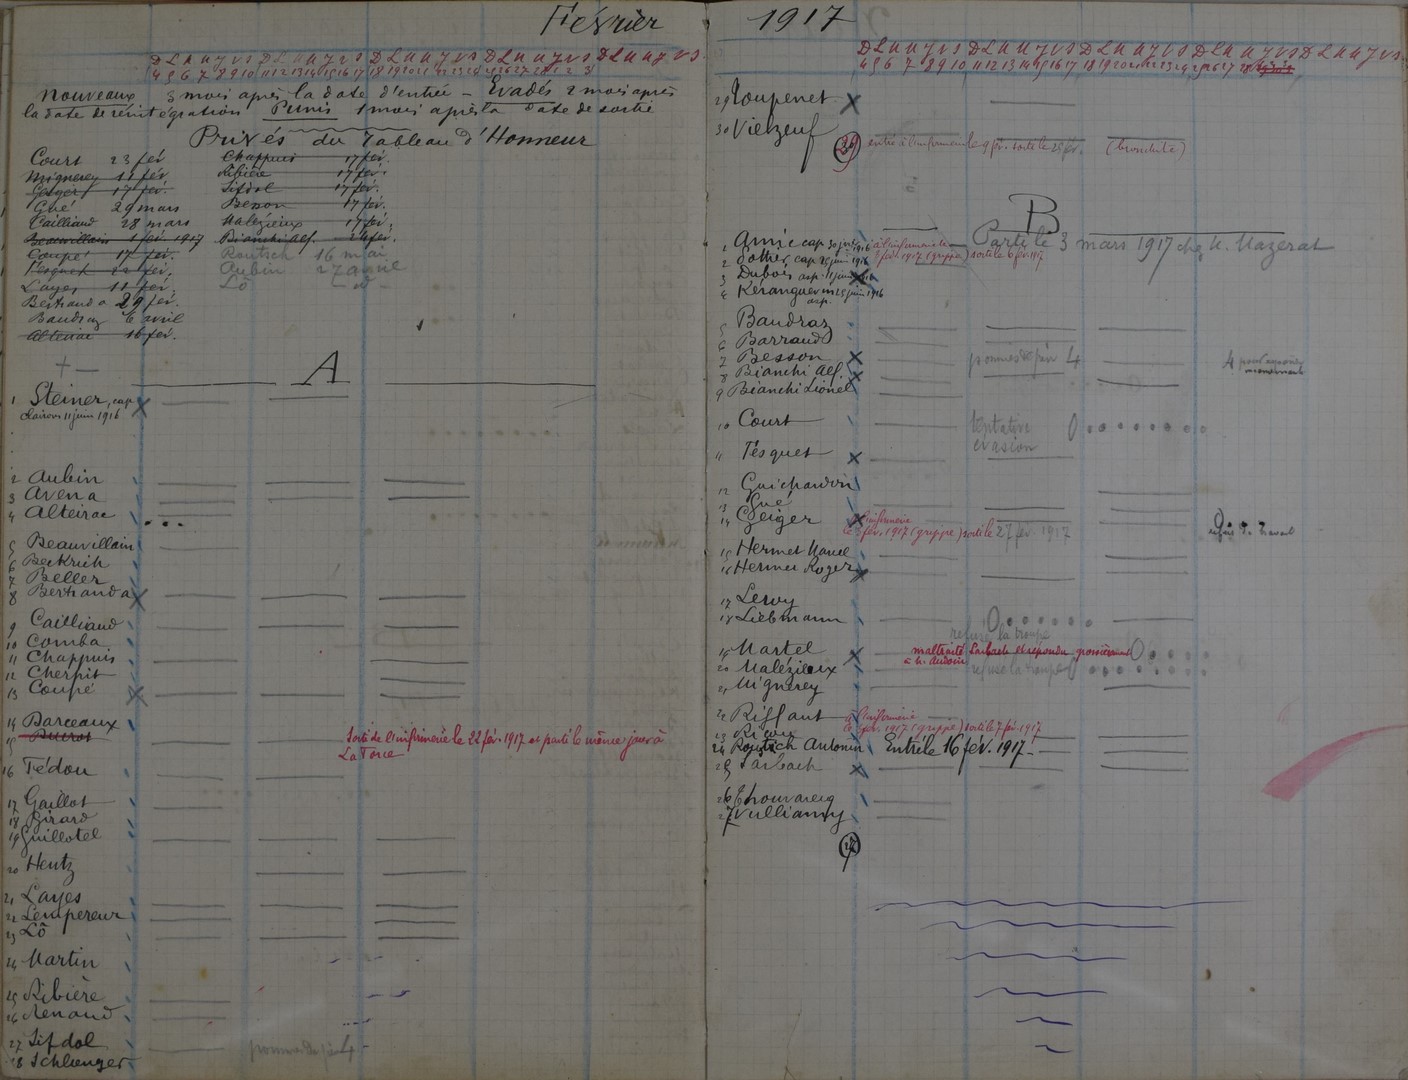 Février 1917
D L M M J V S D L M M J V S D L M M J V S D L M M J V S D L M M J V S
4 5 6 7 8 9 10 11 12 13 14 15 16 17 18 19 20 21 22 23 24 25 26 27 28 1 2 3
Nouveaux 3 mois après la date d'entrée - Evadés 2 mois après
la date de réintégration Punis 1 mois après la date de sortie
Privés du Tableau d'Honneur
Court 23 fév Chappuis 17 fév.
Mignerey 11 fév Ribière 17 fév.
Geiger 17 fév. Sifdol 17 fév.
Gué 29 mars Besson 17 fév.
Cailliaud 28 mars Malézieux 17 fév.
Beauvillain 1 fév 1917 Bianchi Alf. 24 fév.
Coupé 17 fév. Routich 16 mai
Fesquet 22 fév. Aubin 27
Layes 11 fév. Lô
Bertranda 29 fév.
Baudraz 6 avril
Alteirac 16 fév.
+ -
A
1 Steiner, cap.
clairon 11 juin 1916
2 Aubin
3 Avena
4 Alteirac
5 Beauvillain
6 Beckrich
7 Beller
8 Bertranda
9 Cailliaud
10 Comba
11 Chappuis
12 Cherpit
13 Coupé
14 Darceaux
15
Sorti de l'infirmerie le 22 fév. 1917 et parti le même jour à
La Force
16 Fédou
17 Gaillot
18 Girard
19 Guillotel
20 Hentz
21 Layes
22 Lempereur
23 Lô
24 Martin
25 Ribière
26 Renaud
27 Sifdol
pomme de 4
28 Schlunger
D L M M J V S D L M M J V S D L M M J V S D L M M J V S D L M M J V S
4 5 6 7 8 9 10 11 12 13 14 15 16 17 18 19 20 21 22 23 24 25 26 27 28
29 Toupenet
30 Vielzeuf
29 entré à l'infirmerie le 9 fév. sorti le 25 fév. (bronchite)
B
Parti le 3 mars 1917 chez M. Mazerat
1 Amic cap. 30 à l'infirmerie le
2 Gothié, cap 25 juin 1916 fév. 1917 (grippe) sorti le 6 fév. 1917
3 Dubois asp. 11 juin 1916
4 Kéranguéven 25 juin 1916
asp.
5 Baudraz
6 Barraud
7 Besson pommes de 4 4
8 Bianchi Alf.
9 Bianchi Lionel
10 Court tentative 0
évasion
11 Fesquet
12 Guichardin
13 Gué
14 Geiger infirmerie
fév. 1917 (grippe) sorti le 27 fév. 1917 refus de travail
15 Hermet Marcel
16 Hermet Roger
17 Leroy
18 Liebmann 0
refuse la troupe
19 Martel maltraité Sarbach et répondu grossièrement 0
20 Malézieux à M. refuse la troupe 0
21 Mignerey
22 Riffaut à l'infirmerie
fév. 1917 (grippe) sorti le 7 fév. 1917
23
24 Routich Antonin Entré le 16 fév. 1917 -
25 Sarbach
26 Thouvarecq
27 Vulliamy
27